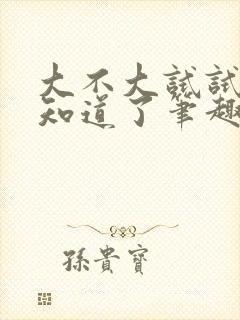 大不大試試
知道了筆趣
孫貴寶